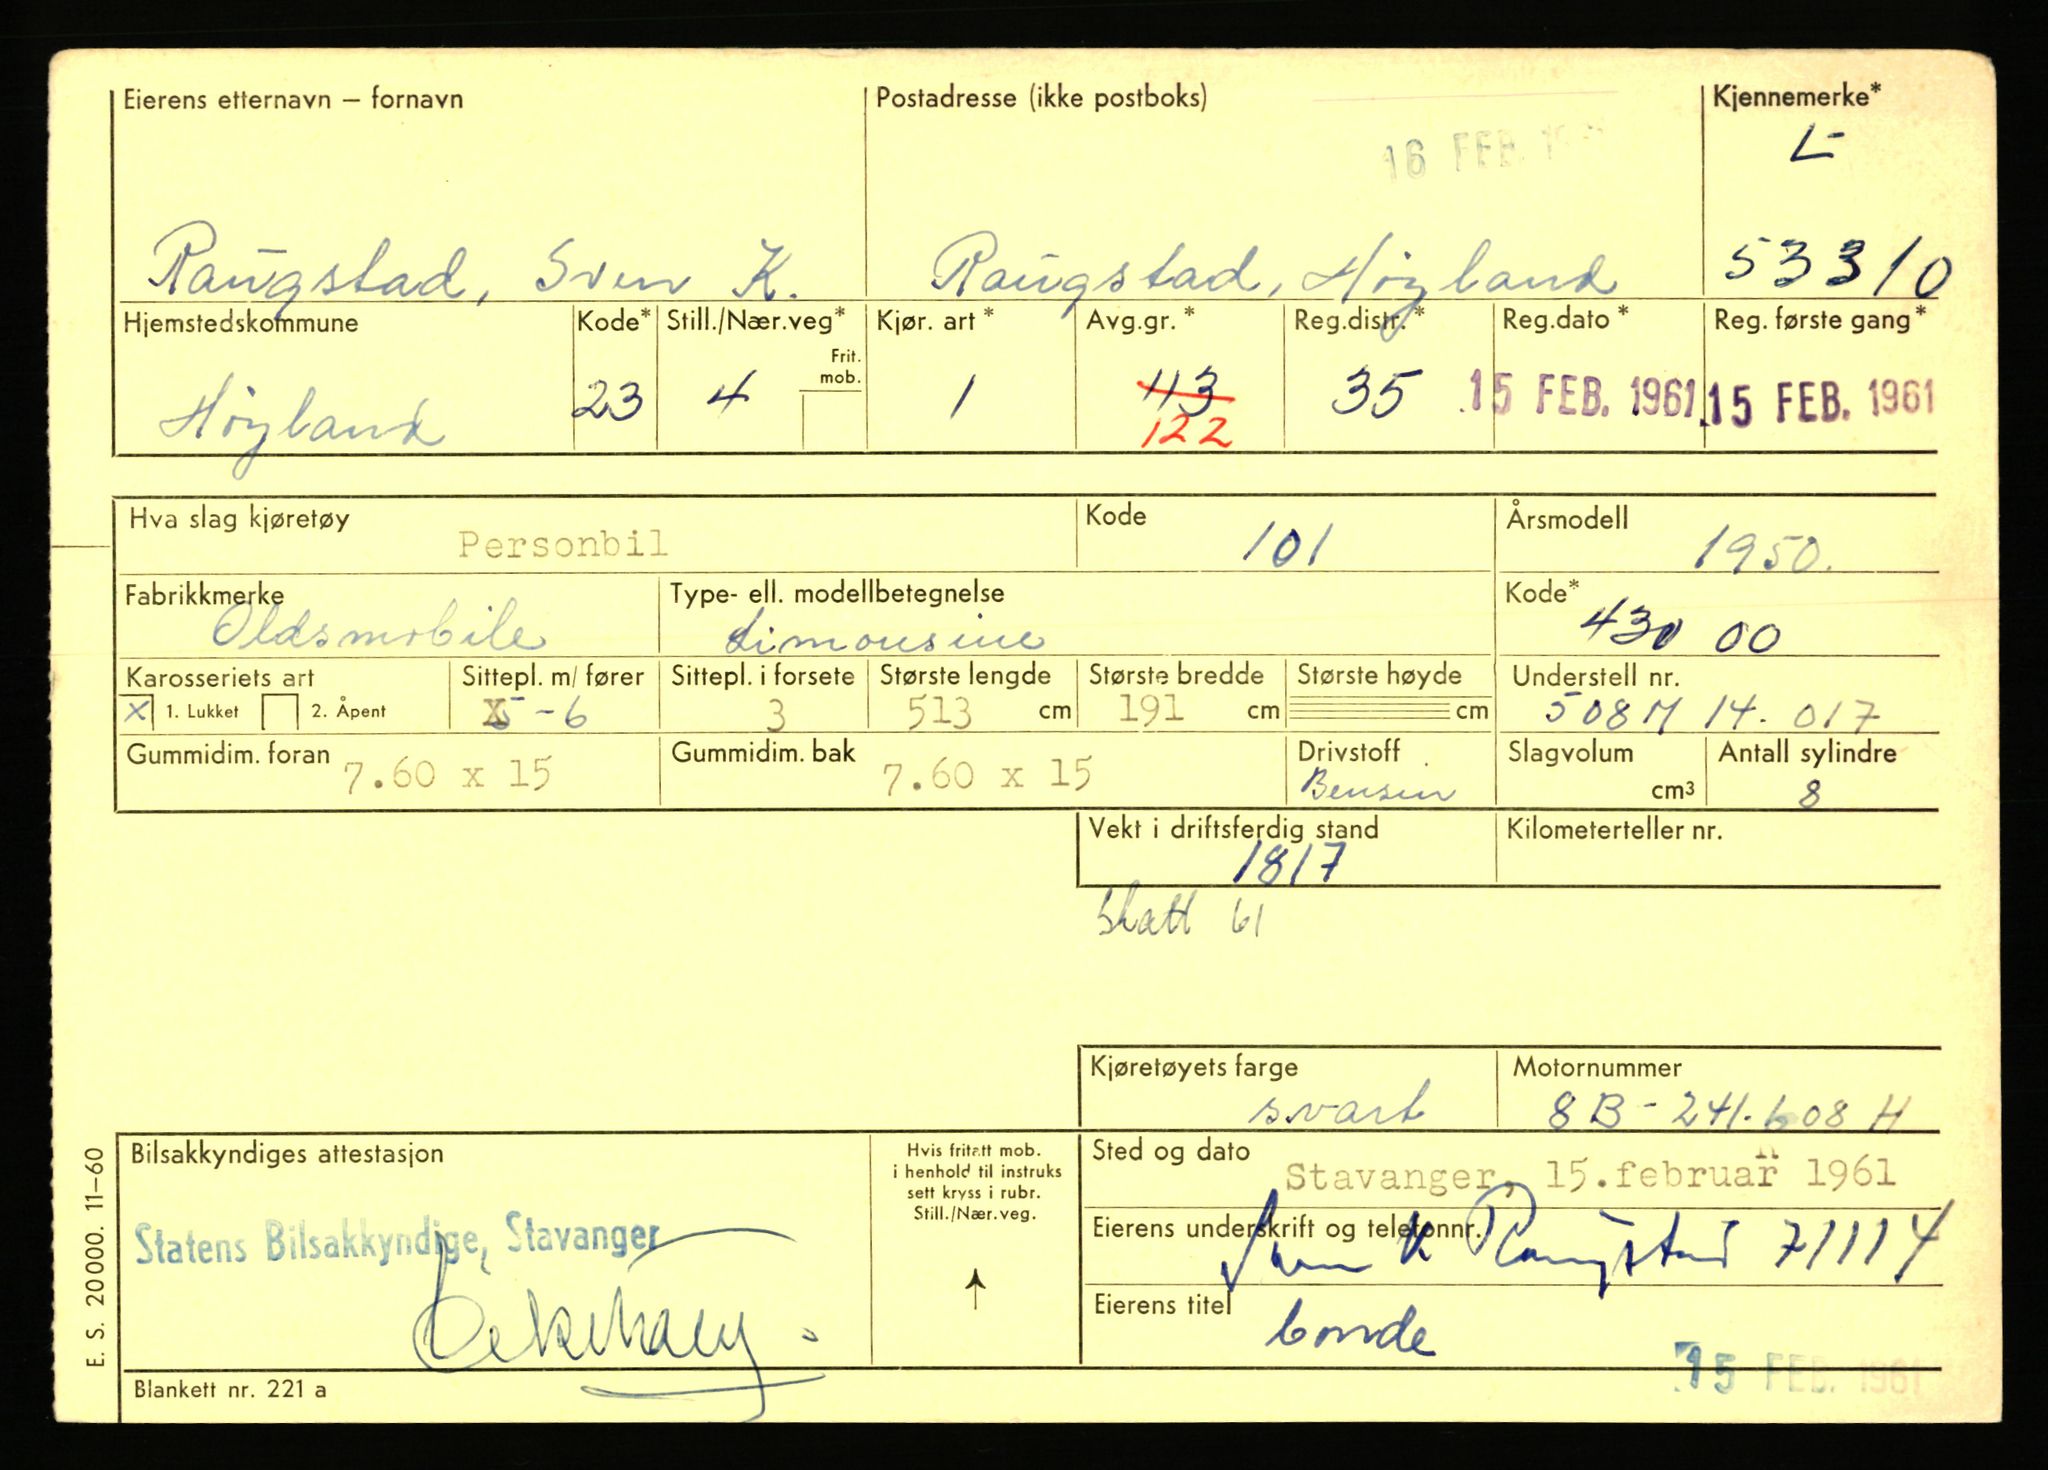 Eierens etternavn – fornavn Postadresse (ikke postboks) Kjennemerke*
16 FEB. L-
Raugstad, Sven K. Raugstad, Høyland 53310
Hjemstedskommune Kode* Still./Nær.veg* Kjør. art* Avg.gr.* Reg.distr.* Reg.dato* Reg. første gang*
Frit. mob.
Høyland 23 4 1 113 35 15 FEB. 1961 15 FEB. 1961
122
Hva slag kjøretøy Personbil Kode 101 Årsmodell 1950.
Fabrikkmerke Type- ell. modellbetegnelse Kode*
Oldsmobile Limousine 430 00
Karosseriets art Sittepl. m/ fører Sittepl. i forsete Største lengde Største bredde Største høyde Understell nr.
X 1. Lukket 2. Åpent 5-6 3 513 cm 191 cm cm 508 M 14.017
Gummidim. foran Gummidim. bak Drivstoff Slagvolum Antall sylindre
7.60 x 15 7.60 x 15 Bensin cm3 8
Vekt i driftsferdig stand Kilometerteller nr.
1817
Skatt 61
Kjøretøyets farge Motornummer
svart 8B-241.608 H
Bilsakkyndiges attestasjon Hvis fritatt mob. i henhold til instruks sett kryss i rubr. Still./Nær.veg. Sted og dato
Stavanger, 15.februar 1961
Statens Bilsakkyndige, Stavanger Eierens underskrift og telefonnr.
Sven K Raugstad 71114
Eierens titel
bonde
15 FEB. 1961
Blankett nr. 221 a
E. S. 20000. 11-60